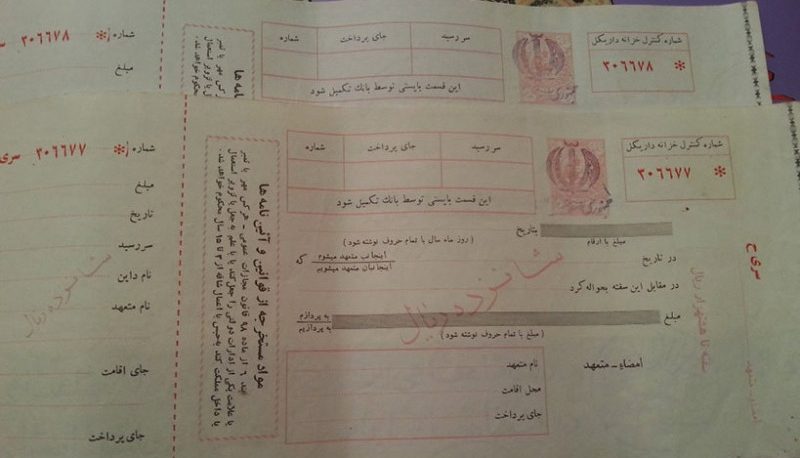 شماره * ۳۰۶۶۷۸
مبلغ
شماره
جای پرداخت
سررسید
این قسمت بایستی توسط بانک تکمیل شود
شماره کنترل خزانه داری کل
* ۳۰۶۶۷۸
شماره * ۳۰۶۶۷۷ سری
مبلغ
تاریخ
سررسید
نام داین
نام متعهد
جای اقامت
جای پرداخت
شانزده ریال
مواد مستخرجه از قوانین و آئین نامه ها
شماره
جای پرداخت
سررسید
این قسمت بایستی توسط بانک تکمیل شود
شماره کنترل خزانه داری کل
* ۳۰۶۶۷۷
بتاریخ
مبلغ با ارقام
(روز ماه سال با تمام حروف نوشته شود)
در تاریخ
اینجانب متعهد میشوم
اینجانبان متعهد میشویم
که
در مقابل این سفته بحواله کرد
مبلغ
به پردازم
به پردازیم
(مبلغ با تمام حروف نوشته شود)
شانزده ریال
امضاء - متعهد
نام متعهد
محل اقامت
جای پرداخت
سری ح
سفته تا هشتهزار ریال